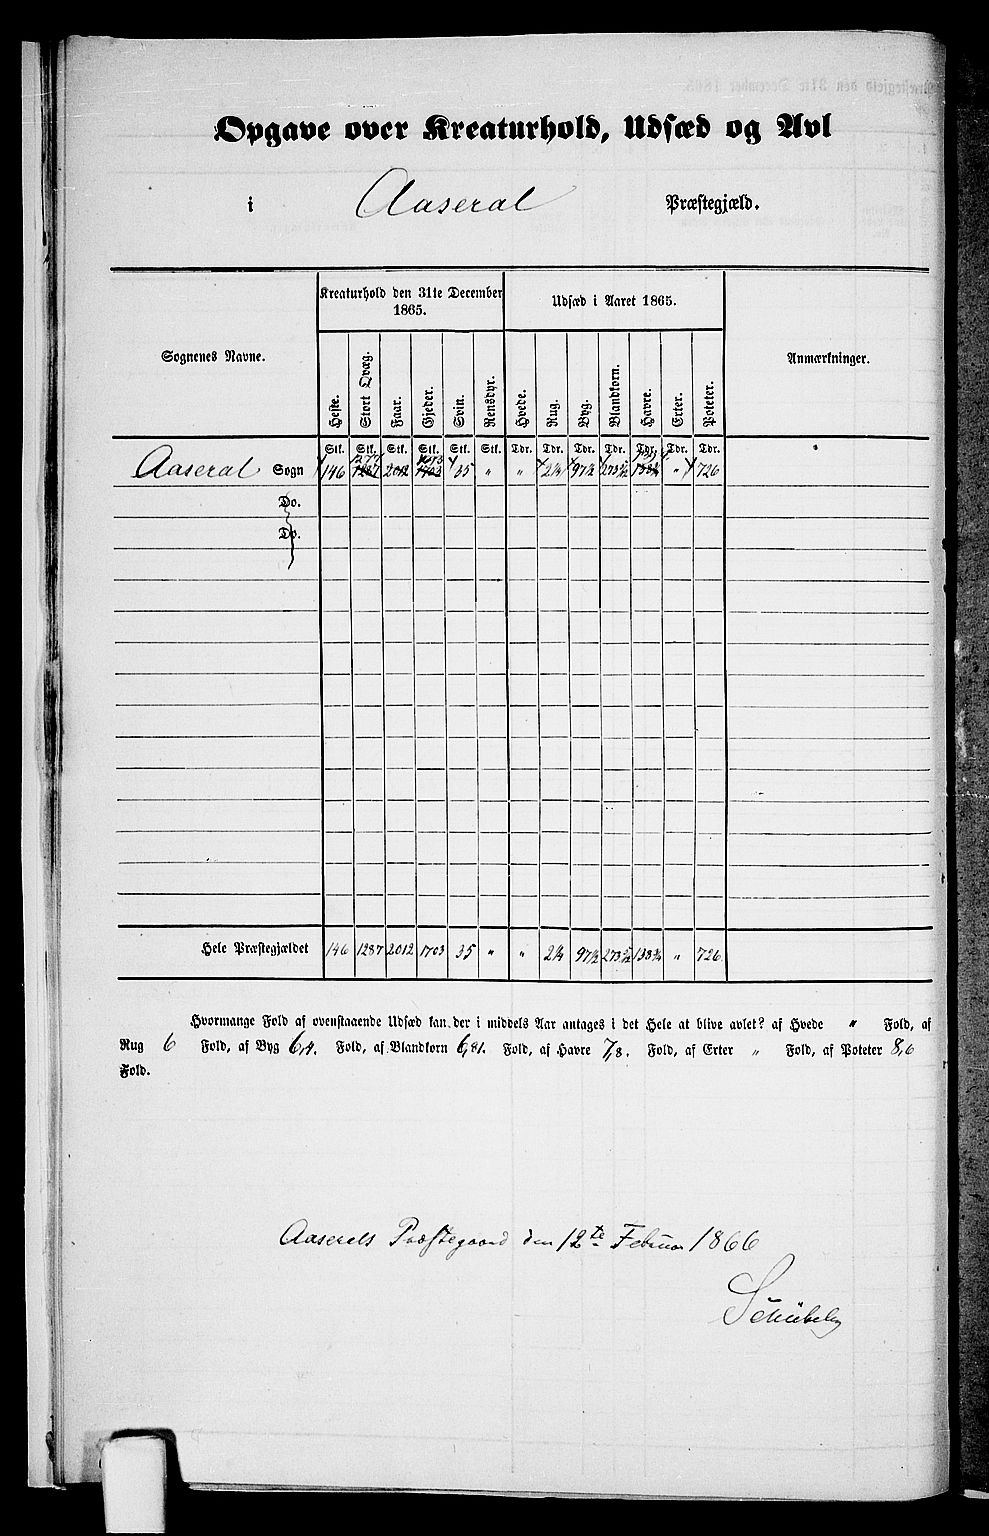 Opgave over Kreaturhold, Udsæd og Avl
i Aaseral Præstegjæld.
Sognenes Navne.
Kreaturhold den 31te December 1865.
Udsæd i Aaret 1865.
Anmærkninger.
Heste. Stort Qvæg. Faar. Gjeder. Svin. Rensdyr. Hvede. Rug. Byg. Blandkorn. Havre. Erter. Poteter.
Stk. Stk. Stk. Stk. Stk. Stk. Tdr. Tdr. Tdr. Tdr. Tdr. Tdr. Tdr.
Aaseral Sogn 146 1287 2012 1703 35 " " 2¼ 97½ " 726
Do.
Do.
Hele Præstegjældet 146 1287 2012 1703 35 " " 2¼ 97½ 133¾ " 726
Hvormange Fold af ovenstaaende Udsæd kan der i middels Aar antages i det Hele at blive avlet? af Hvede " Fold, af
Rug 6 Fold, af Byg 6,4. Fold, af Blandkorn 6,81. Fold, af Havre 7,8. Fold, af Erter " Fold, af Poteter 8,6
Fold.
Aaserals Præstegaard den 12te Februar 1866